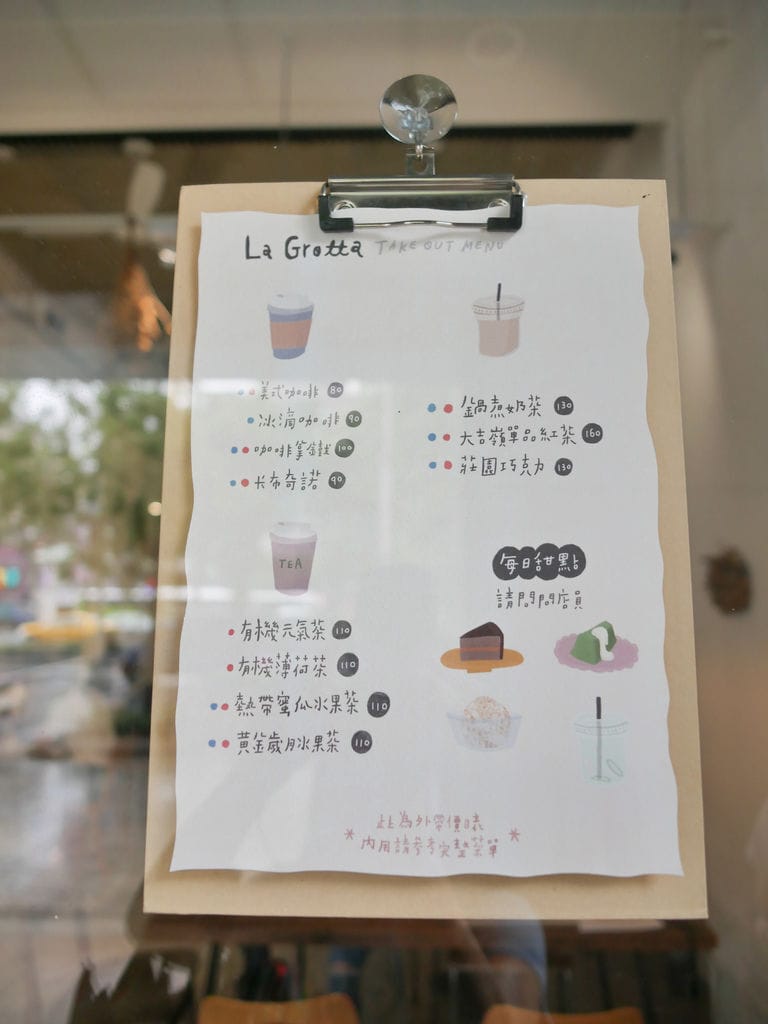 La Grotta TAKE OUT MENU
美式咖啡 80
冰滴咖啡 90
咖啡拿鐵 100
卡布奇諾 90
鍋煮奶茶 130
大吉嶺單品紅茶 160
莊園巧克力 130
TEA
有機元氣茶 110
有機薄荷茶 110
熱帶蜜瓜水果茶 110
黃金歲月水果茶 110
每日甜點
請問問店員
* 此為外帶價目表 *
內用請參考完整菜單